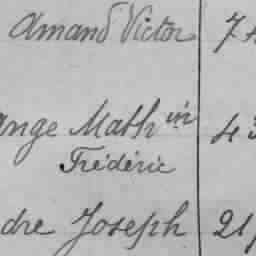 Amand Victor 74
ange Mathin 43
Frédéric
dre Joseph 21